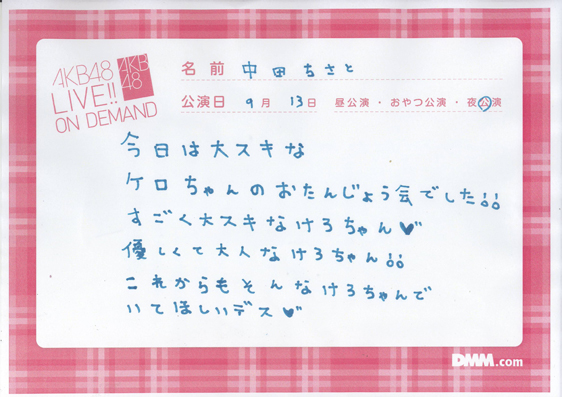 AKB48
LIVE!!
ON DEMAND
AKB
48
名前 中田ちさと
公演日 9月 13日 昼公演・おやつ公演・夜公演
今日は大スキな
ケロちゃんのおたんじょう会でした!!
すごく大スキなけろちゃん♥
優しくて大人なけろちゃん!!
これからもそんなけろちゃんで
いてほしいデス♥
DMM.com